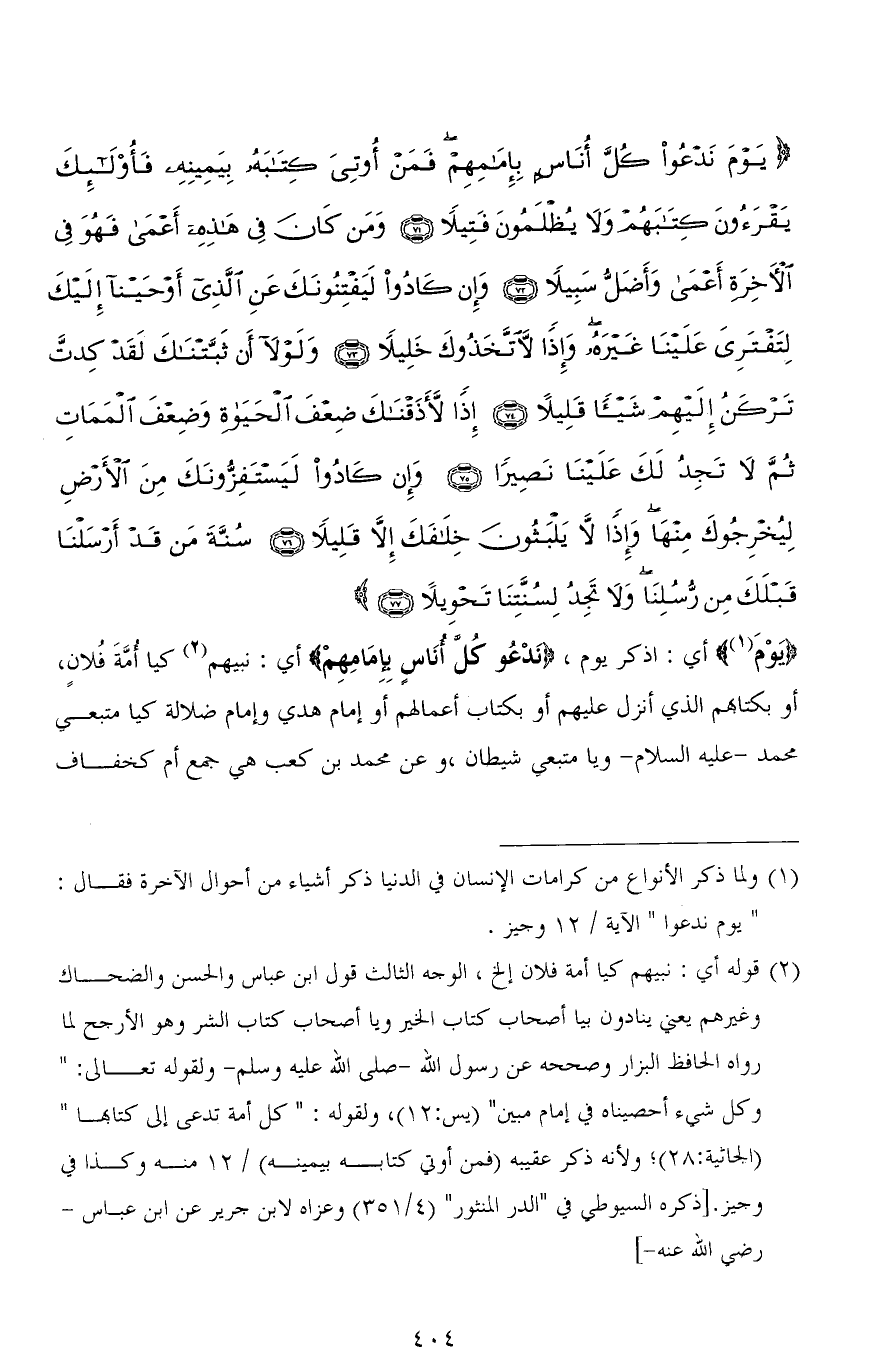 ﴿ يَوْمَ نَدْعُوا۟ كُلَّ أُنَاسٍۭ بِإِمَـٰمِهِمْ ۖ فَمَنْ أُوتِىَ كِتَـٰبَهُۥ بِيَمِينِهِۦ فَأُو۟لَـٰٓئِكَ
يَقْرَءُونَ كِتَـٰبَهُمْ وَلَا يُظْلَمُونَ فَتِيلًا ٧١ وَمَن كَانَ فِى هَـٰذِهِۦٓ أَعْمَىٰ فَهُوَ فِى
ٱلْـَٔاخِرَةِ أَعْمَىٰ وَأَضَلُّ سَبِيلًا ٧٢ وَإِن كَادُوا۟ لَيَفْتِنُونَكَ عَنِ ٱلَّذِىٓ أَوْحَيْنَآ إِلَيْكَ
لِتَفْتَرِىَ عَلَيْنَا غَيْرَهُۥ ۖ وَإِذًا لَّٱتَّخَذُوكَ خَلِيلًا ٧٣ وَلَوْلَآ أَن ثَبَّتْنَـٰكَ لَقَدْ كِدتَّ
تَرْكَنُ إِلَيْهِمْ شَيْـًٔا قَلِيلًا ٧٤ إِذًا لَّأَذَقْنَـٰكَ ضِعْفَ ٱلْحَيَوٰةِ وَضِعْفَ ٱلْمَمَاتِ
ثُمَّ لَا تَجِدُ لَكَ عَلَيْنَا نَصِيرًا ٧٥ وَإِن كَادُوا۟ لَيَسْتَفِزُّونَكَ مِنَ ٱلْأَرْضِ
لِيُخْرِجُوكَ مِنْهَا ۖ وَإِذًا لَّا يَلْبَثُونَ خِلَـٰفَكَ إِلَّا قَلِيلًا ٧٦ سُنَّةَ مَن قَدْ أَرْسَلْنَا
قَبْلَكَ مِن رُّسُلِنَا ۖ وَلَا تَجِدُ لِسُنَّتِنَا تَحْوِيلًا ٧٧ ﴾
﴿يَوْمَ(١)﴾ أي : اذكر يوم ، ﴿نَدْعُو كُلَّ أُنَاسٍ بِإِمَامِهِمْ﴾ أي : نبيهم(٢) كيا أُمَّةَ فُلانٍ،
أو بكتاهم الذي أنزل عليهم أو بكتاب أعمالهم أو إمام هدي وإمام ضلالة كيا متبعـــي
محمد –عليه السلام– ويا متبعي شيطان ،و عن محمد بن كعب هي جمع أم كخفـــاف
(١) ولما ذكر الأنواع من كرامات الإنسان في الدنيا ذكر أشياء من أحوال الآخرة فقـــال :
" يوم ندعوا " الآية / ١٢ وجيز .
(٢) قوله أي : نبيهم كيا أمة فلان إلخ ، الوجه الثالث قول ابن عباس والحسن والضحـــاك
وغيرهم يعني ينادون بيا أصحاب كتاب الخير ويا أصحاب كتاب الشر وهو الأرجح لما
رواه الحافظ البزار وصححه عن رسول الله –صلى الله عليه وسلم– ولقوله تعـــالى: "
وكل شيء أحصيناه في إمام مبين" (يس:١٢)، ولقوله : " كل أمة تدعى إلى كتاهـا "
(الجاثية:٢٨)؛ ولأنه ذكر عقيبه (فمن أوتي كتابـــه بيمينـــه) / ١٢ منـــه وكـــذا في
وجيز.[ذكره السيوطي في "الدر المنثور" (٣٥١/٤) وعزاه لابن جرير عن ابن عبـاس –
رضي الله عنه–]
٤٠٤